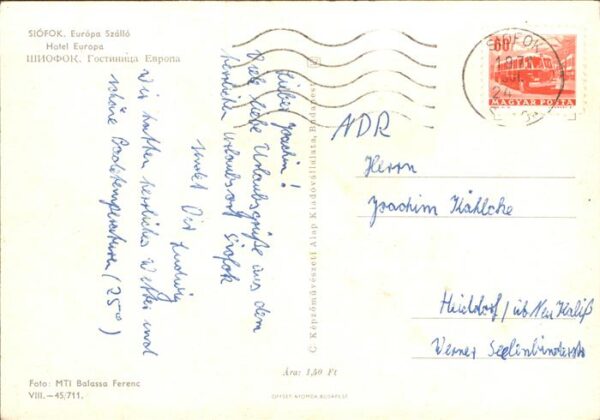 SIÓFOK. Európa Szálló
Hotel Europa
ШИОФОК. Гостиница Европа
Lieber Joachim!
Viele liebe Urlaubsgrüße aus dem
herrlichen Urlaubsort Siofok
sendet Dir Ludwig
Wir hatten herrliches Wetter und
schöne Badetemperaturen (25°)
C Képzőművészeti Alap Kiadóvállalata, Budapest
60
SIÓFOK
MAGYAR POSTA
NDR
Herrn
Joachim Kählcke
Heiddorf / üb Neu Kaliß
Verner Seelenbinderstr
Foto: MTI Balassa Ferenc
VIII.—45/711.
Ára: 1,50 Ft
OFFSET-NYOMDA BUDAPEST